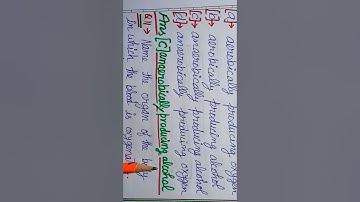 [a]→ aerobically producing oxygen
[b]→ aerobically producing alcohol
[c]→ anaerobically producing alcohol
[d]→ anaerobically producing oxygen
Ans [c] anaerobically producing alcohol
Q.11→ Name the organ of the body
In which the blood is oxygenated.